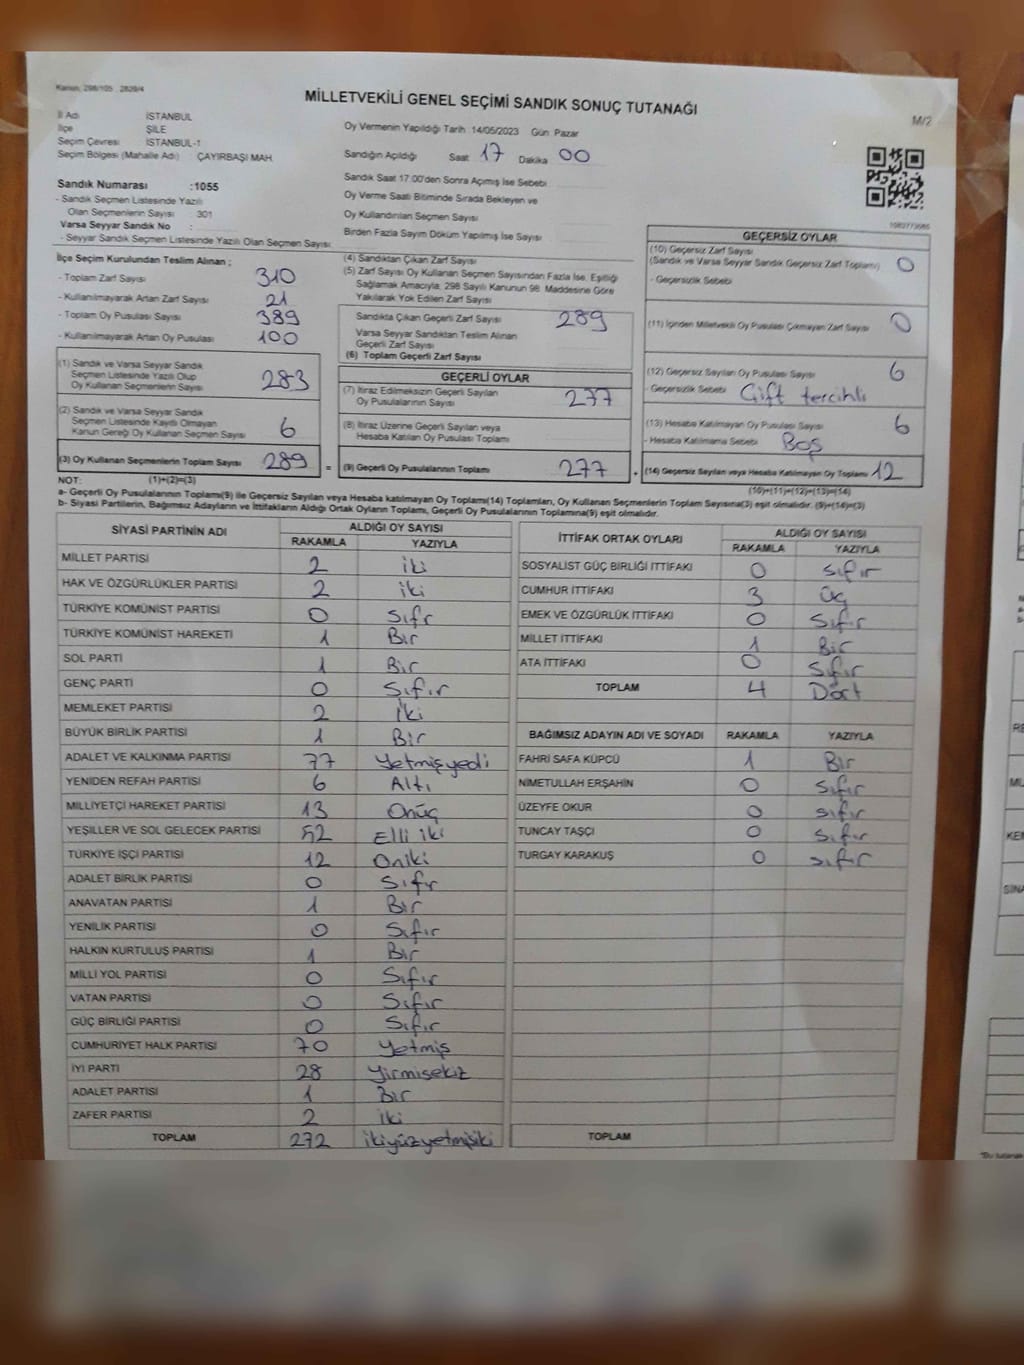 Kanun: 298/105 , 2839/4
MİLLETVEKİLİ GENEL SEÇİMİ SANDIK SONUÇ TUTANAĞI
M/2
İl Adı İSTANBUL
İlçe ŞİLE
Seçim Çevresi İSTANBUL-1
Seçim Bölgesi (Mahalle Adı) ÇAYIRBAŞI MAH.
Sandık Numarası :1055
- Sandık Seçmen Listesinde Yazılı
Olan Seçmenlerin Sayısı 301
Varsa Seyyar Sandık No :
- Seyyar Sandık Seçmen Listesinde Yazılı Olan Seçmen Sayısı:
Oy Vermenin Yapıldığı Tarih 14/05/2023 Gün Pazar
Sandığın Açıldığı Saat 17 Dakika 00
Sandık Saat 17:00'den Sonra Açımış İse Sebebi
Oy Verme Saati Bitiminde Sırada Bekleyen ve
Oy Kullandırılan Seçmen Sayısı
Birden Fazla Sayım Döküm Yapılmış İse Sayısı
İlçe Seçim Kurulundan Teslim Alınan ;
- Toplam Zarf Sayısı 310
- Kullanılmayarak Artan Zarf Sayısı 21
- Toplam Oy Pusulası Sayısı 389
- Kullanılmayarak Artan Oy Pusulası 100
(1) Sandık ve Varsa Seyyar Sandık
Seçmen Listesinde Yazılı Olup
Oy Kullanan Seçmenlerin Sayısı 283
(2) Sandık ve Varsa Seyyar Sandık
Seçmen Listesinde Kayıtlı Olmayan
Kanun Gereği Oy Kullanan Seçmen Sayısı 6
(3) Oy Kullanan Seçmenlerin Toplam Sayısı 289 =
(4) Sandıktan Çıkan Zarf Sayısı
(5) Zarf Sayısı Oy Kullanan Seçmen Sayısından Fazla İse, Eşitliği
Sağlamak Amacıyla; 298 Sayılı Kanunun 98. Maddesine Göre
Yakılarak Yok Edilen Zarf Sayısı
Sandıkta Çıkan Geçerli Zarf Sayısı 289
Varsa Seyyar Sandıktan Teslim Alınan
Geçerli Zarf Sayısı
(6) Toplam Geçerli Zarf Sayısı
GEÇERLİ OYLAR
(7) İtiraz Edilmeksizin Geçerli Sayılan
Oy Pusulalarının Sayısı 277
(8) İtiraz Üzerine Geçerli Sayılan veya
Hesaba Katılan Oy Pusulası Toplamı
(9) Geçerli Oy Pusulalarının Toplamı 277 +
GEÇERSİZ OYLAR
(10) Geçersiz Zarf Sayısı
(Sandık ve Varsa Seyyar Sandık Geçersiz Zarf Toplamı) 0
- Geçersizlik Sebebi
(11) İçinden Milletvekili Oy Pusulası Çıkmayan Zarf Sayısı 0
(12) Geçersiz Sayılan Oy Pusulası Sayısı 6
- Geçersizlik Sebebi Çift tercihli
(13) Hesaba Katılmayan Oy Pusulası Sayısı 6
- Hesaba Katılmama Sebebi Boş
(14) Geçersiz Sayılan veya Hesaba Katılmayan Oy Toplamı 12
NOT: (1)+(2)=(3) (10)+(11)+(12)+(13)=(14)
a- Geçerli Oy Pusulalarının Toplamı(9) ile Geçersiz Sayılan veya Hesaba katılmayan Oy Toplamı(14) Toplamları, Oy Kullanan Seçmenlerin Toplam Sayısına(3) eşit olmalıdır. (9)+(14)=(3)
b- Siyasi Partilerin, Bağımsız Adayların ve İttifakların Aldığı Ortak Oyların Toplamı, Geçerli Oy Pusulalarının Toplamına(9) eşit olmalıdır.
SİYASİ PARTİNİN ADI ALDIĞI OY SAYISI
RAKAMLA YAZIYLA
MİLLET PARTİSİ 2 iki
HAK VE ÖZGÜRLÜKLER PARTİSİ 2 iki
TÜRKİYE KOMÜNİST PARTİSİ 0 Sıfr
TÜRKİYE KOMÜNİST HAREKETİ 1 Bir
SOL PARTİ 1 Bir
GENÇ PARTİ 0 Sıfır
MEMLEKET PARTİSİ 2 iki
BÜYÜK BİRLİK PARTİSİ 1 Bir
ADALET VE KALKINMA PARTİSİ 77 Yetmişyedi
YENİDEN REFAH PARTİSİ 6 Altı
MİLLİYETÇİ HAREKET PARTİSİ 13 Onüç
YEŞİLLER VE SOL GELECEK PARTİSİ 52 Elli iki
TÜRKİYE İŞÇİ PARTİSİ 12 Oniki
ADALET BİRLİK PARTİSİ 0 Sıfır
ANAVATAN PARTİSİ 1 Bir
YENİLİK PARTİSİ 0 Sıfır
HALKIN KURTULUŞ PARTİSİ 1 Bir
MİLLİ YOL PARTİSİ 0 Sıfır
VATAN PARTİSİ 0 Sıfır
GÜÇ BİRLİĞİ PARTİSİ 0 Sıfır
CUMHURİYET HALK PARTİSİ 70 Yetmiş
İYİ PARTİ 28 Yirmisekiz
ADALET PARTİSİ 1 Bir
ZAFER PARTİSİ 2 iki
TOPLAM 272 ikiyüzyetmişiki
İTTİFAK ORTAK OYLARI ALDIĞI OY SAYISI
RAKAMLA YAZIYLA
SOSYALİST GÜÇ BİRLİĞİ İTTİFAKI 0 sıfır
CUMHUR İTTİFAKI 3 Üç
EMEK VE ÖZGÜRLÜK İTTİFAKI 0 Sıfır
MİLLET İTTİFAKI 1 Bir
ATA İTTİFAKI 0 Sıfır
TOPLAM 4 Dört
BAĞIMSIZ ADAYIN ADI VE SOYADI RAKAMLA YAZIYLA
FAHRİ SAFA KÜPCÜ 1 Bir
NİMETULLAH ERŞAHİN 0 Sıfır
ÜZEYFE OKUR 0 sıfır
TUNCAY TAŞÇI 0 Sıfır
TURGAY KARAKUŞ 0 sıfır
TOPLAM